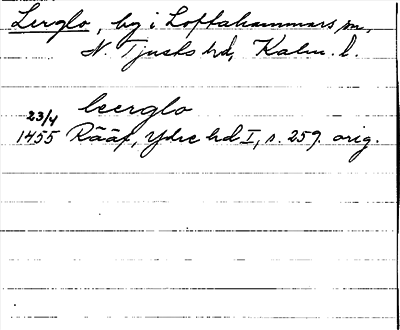 Lerglo, by i Loftahammars sn,
N. Tjusts hd, Kalm. l.
leerglo
23/4
1455 Rääf, Ydre hd I, s. 259. orig.